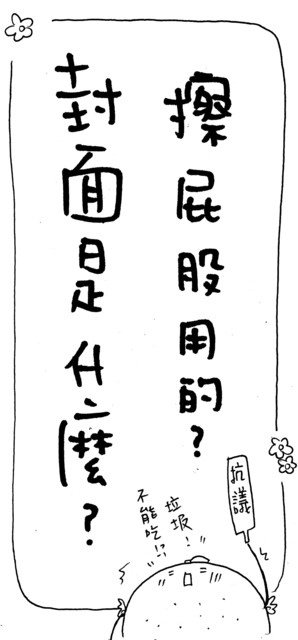 擦屁股用的?
封面是什麼?
抗議
垃圾!
不能吃!?